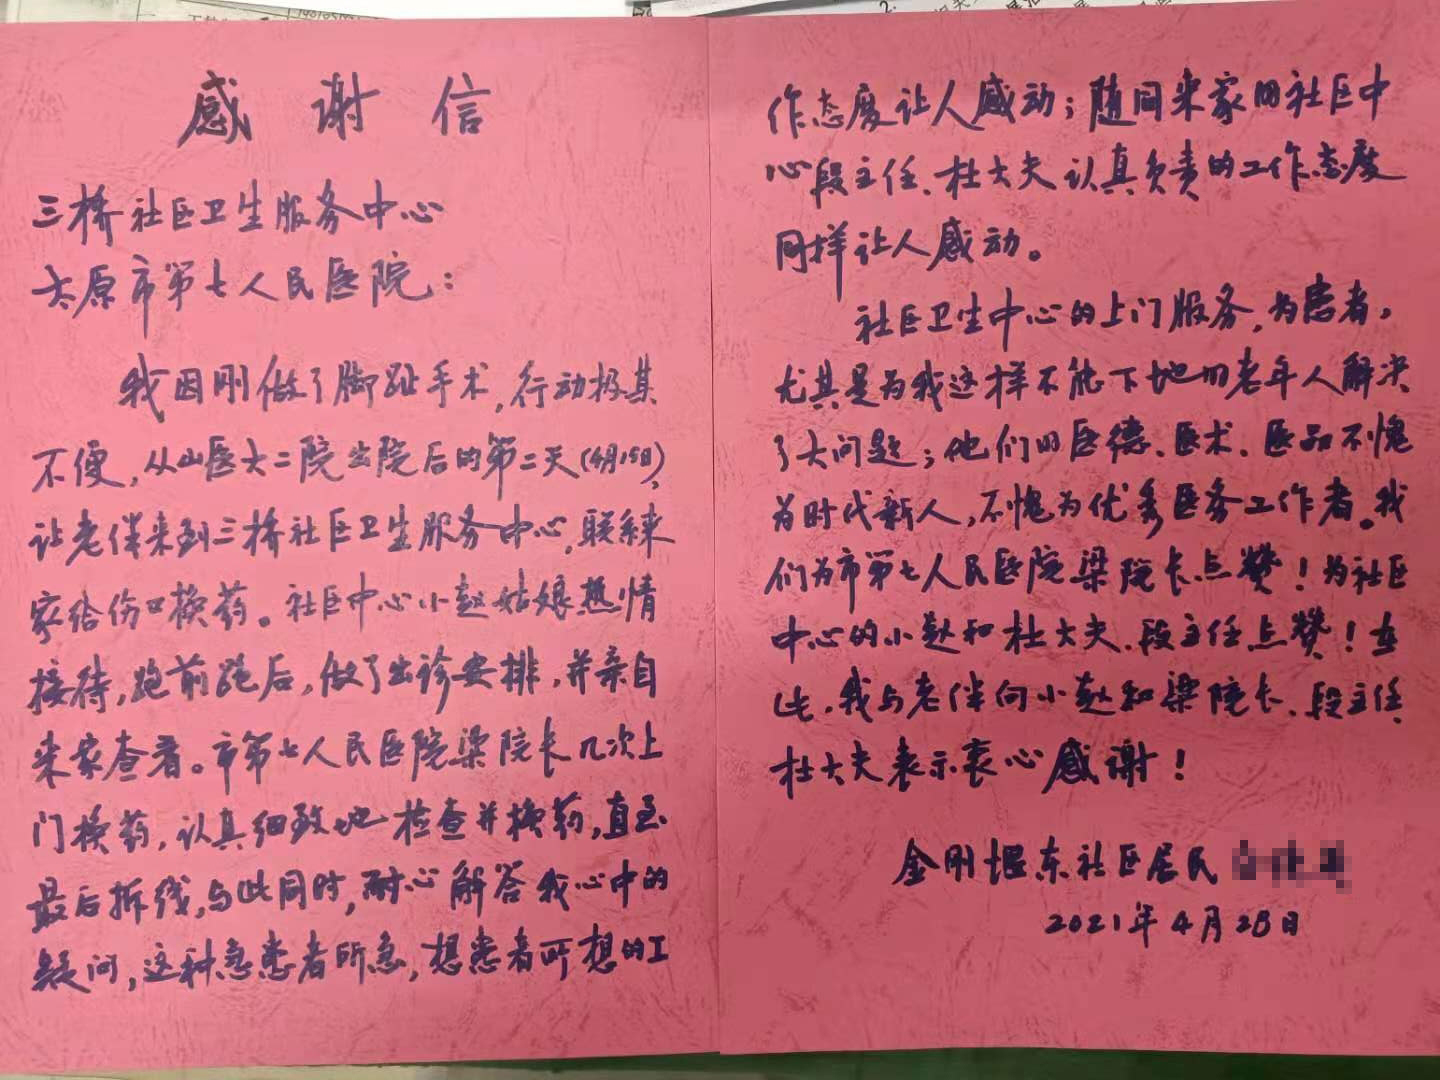 感谢信
三桥社区卫生服务中心
太原市第七人民医院：
我因刚做了脚趾手术，行动极其
不便，从山医大二院出院后的第二天（4月15日），
让老伴来到三桥社区卫生服务中心，联系来
家给伤口换药。社区中心小赵姑娘热情
接待，跑前跑后，做了出诊安排，并亲自
来家查看。市第七人民医院梁院长几次上
门换药，认真细致地检查并换药，直至
最后拆线，与此同时，耐心解答我心中的
疑问，这种急患者所急，想患者所想的工
作态度让人感动；随同来家的社区中
心段主任、杜大夫认真负责的工作态度
同样让人感动。
社区卫生中心的上门服务，为患者，
尤其是为我这样不能下地的老年人解决
了大问题；他们的医德、医术、医品不愧
为时代新人，不愧为优秀医务工作者。我
们为市第七人民医院梁院长点赞！为社区
中心的小赵和杜大夫、段主任点赞！在
此，我与老伴向小赵和梁院长、段主任、
杜大夫表示衷心感谢！
金刚堰东社区居民
2021年4月28日